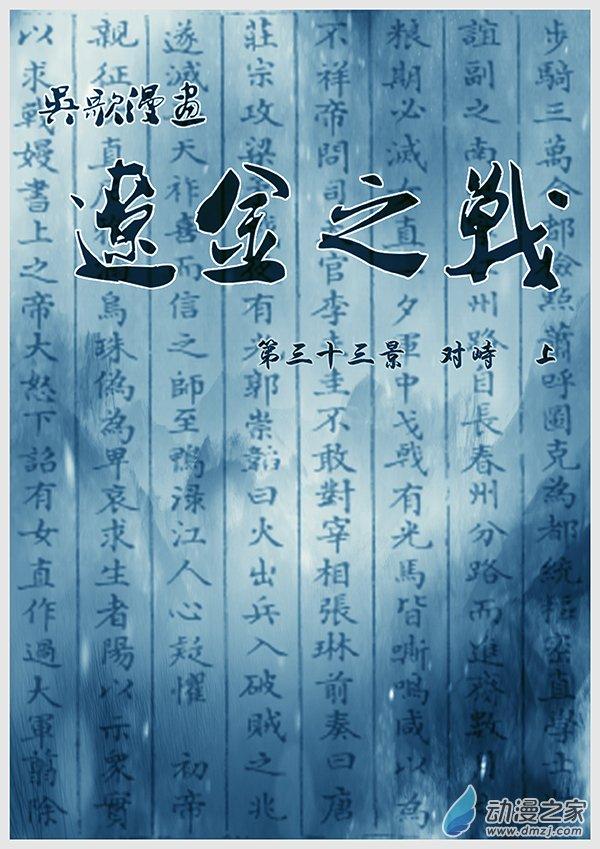 吳歌漫畫
遼金之戰
第三十三景 对峙 上
步騎三萬命都檢點蕭呼圖克為都統樞密直學士
誼副之南州路自長春州分路而進發數月
粮期必滅女直夕軍中戈戟有光馬皆嘶鳴咸以為
不祥帝問司天官李圭圭不敢對宰相張琳前奏曰唐
莊宗攻梁有光郭崇韜曰火出兵入破賊之兆
遂滅天祚喜而信之師至鴨淥江人心疑懼 初帝
親征直烏珠偽為卑哀求生者陽以示眾實
以求戰嫚書上之帝大怒下詔有女直作過大軍翦除
动漫之家
www.dmzj.com